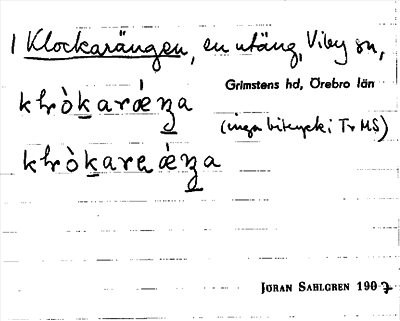 1 Klockarängen, en utäng, Viby sn,
Grimstens hd, Örebro län
khòkaráeŋa
(inga bitryck i Tr MS)
khòkaraáeŋa
JÖRAN SAHLGREN 1907